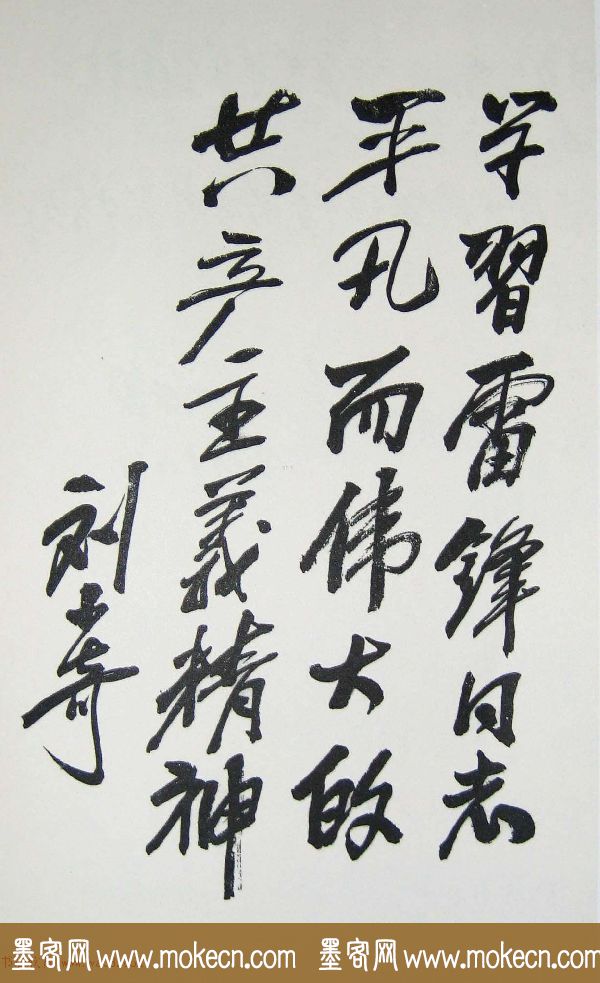 学習雷鋒同志
平凡而伟大的
共产主義精神
刘少奇
墨客网 www.mokecn.com 墨客网 www.mokecn.com